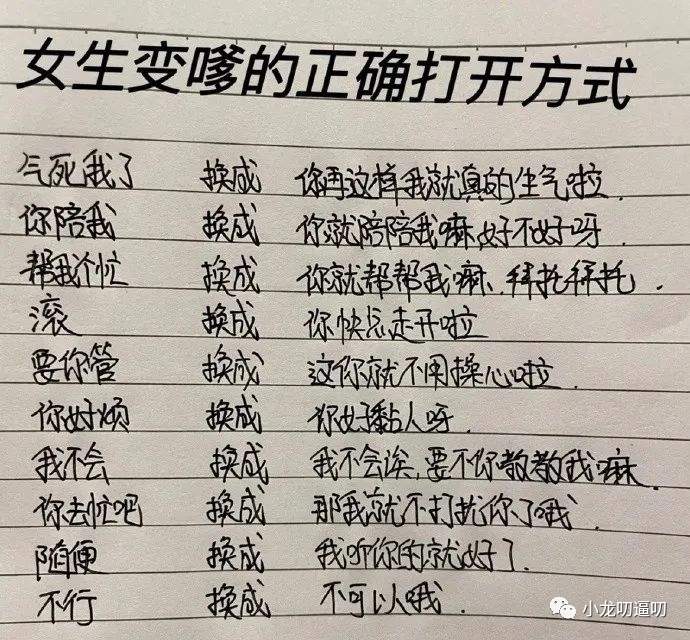 女生变嗲的正确打开方式
气死我了 换成 你再这样我就真的生气啦.
你陪我 换成 你就陪陪我嘛好不好呀.
帮我个忙 换成 你就帮帮我嘛、拜托拜托.
滚 换成 你快点走开啦
要你管 换成 这你就不用操心啦.
你好烦 换成 你好黏人呀.
我不会 换成 我不会诶,要不你教教我嘛.
你去忙吧 换成 那我就不打扰你了哦.
随便 换成 我听你的就好了.
不行 换成 不可以哦.
小龙叨逼叨